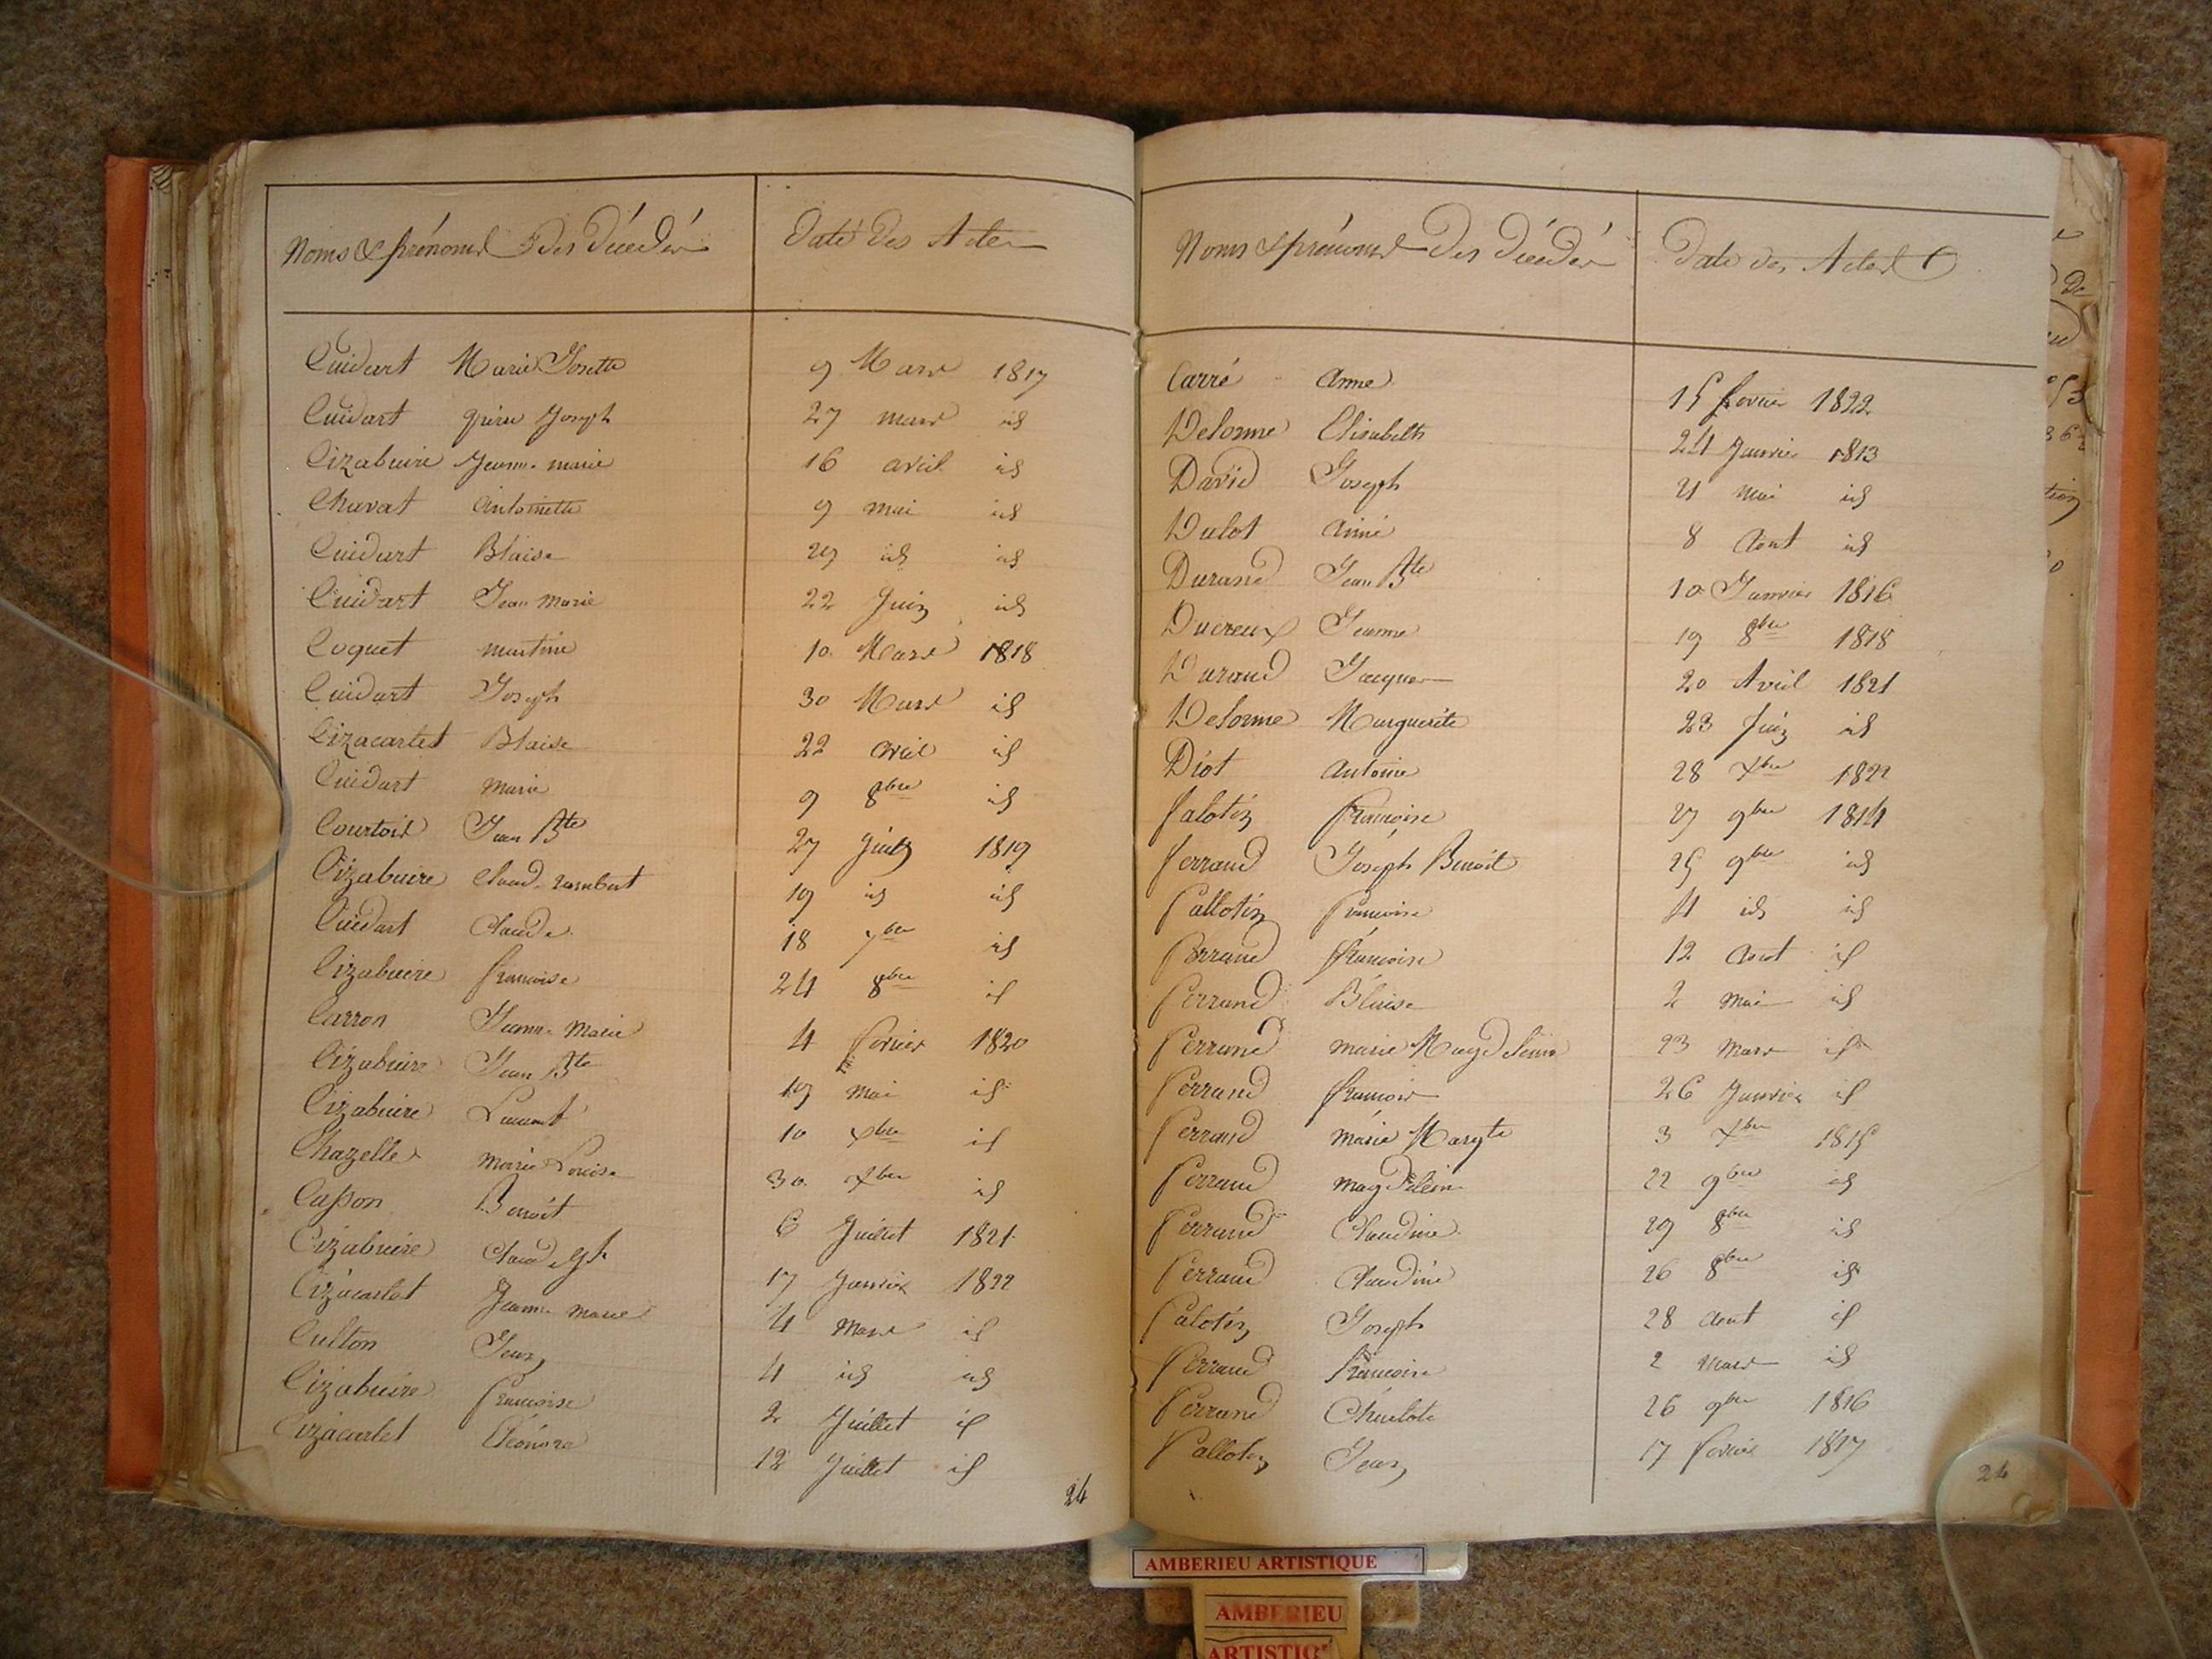 Noms & prénoms Des Décédés Date des Actes
Cuidart Marie Josette 9 Mars 1817
Cuidart pierre Joseph 27 mars id
Cizabuire Jeanne marie 16 avril id
Chavat Antoinette 9 mai id
Cuidart Blaise 29 id id
Cuidart Jean Marie 22 Juin id
Coquet martine 10 Mars 1818
Cuidart Joseph 30 Mars id
Cizacarlet Blaise 22 avril id
Cuidart Marie 9 8bre id
Courtois Jean Bte 27 1819
Cizabuire Claude Rambert 19 id id
Cuidart Claude 18 7bre id
Cizabuire francoise 24 8bre id
Carron Jeanne Marie 4 fevrier 1820
Cizabuire Jean Bte 19 mai id
Cizabuire Laurent 10 Xbre id
Chazelle Marie Louise 30 Xbre id
Casson Benoit 6 Juillet 1821
Cizabuire Claude Jph 17 Janvier 1822
Cizacarlet Jeanne Marie 4 Mars id
Culton Jean 4 id id
Cizabuire francoise 2 Juillet id
Cizacarlet Eléonore 12 Juillet id
24
Noms & prénoms Des Décédés Date des Actes
Carré Anne 15 fevrier 1822
Delorme Elisabeth 24 Janvier 1813
David Joseph 4 Mai id
Dulot Aimé 8 Aout id
Durand Jean Bte 10 Janvier 1816
Ducreux Jeanne 19 8bre 1818
Durand Jacques 20 Avril 1821
Delorme Marguerite 23 Juin id
Diot Antoine 28 Xbre 1822
falotin francoise 27 9bre 1814
ferrand Joseph Benoit 25 9bre id
fallotin francoise 4 id id
ferrand francoise 12 Aout id
ferrand Blaise 2 mai id
ferrand marie Magdeleine 23 Mars id
ferrand francois 26 Janvier id
ferrand marie Margte 3 Xbre 1815
ferrand magdeleine 22 9bre id
ferrand Claudine 29 8bre id
ferrand Claudine 26 8bre id
falotin Joseph 28 Aout id
ferrand francoise 2 Mars id
ferrand Charlote 26 9bre 1816
fallotin Jean 17 fevrier 1817
24
AMBERIEU ARTISTIQUE
AMBERIEU